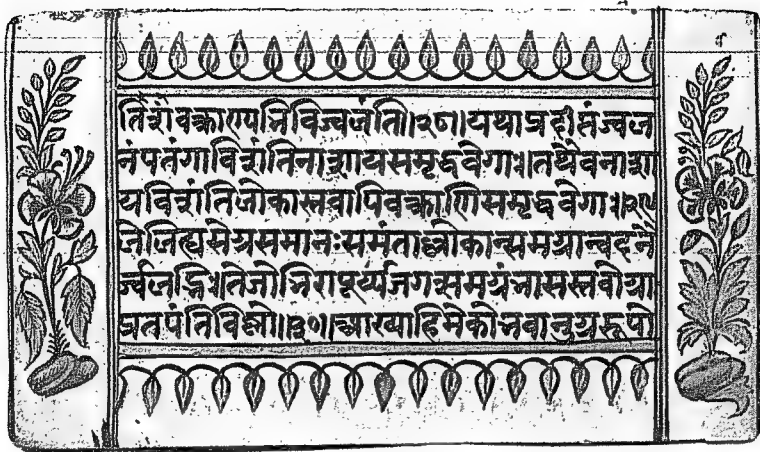 तिशंवक्त्राण्यभिविज्वलंति॥२८॥यथाप्रदीप्तंज्वल
नंपतंगाविशंतिनाशायसमृद्धवेगाः।तथैवनाशा
यविशंतिलोकास्तवापिवक्त्राणिसमृद्धवेगाः॥२९
लेलिह्यसेग्रसमानःसमंताल्लोकान्समग्रान्वदनै
र्ज्वलद्भिः।तेजोभिरापूर्य्यजगत्समग्रंभासस्तवोग्रा
प्रतपंतिविष्णो॥३०॥आख्याहिमेकोभवानुग्ररूपो